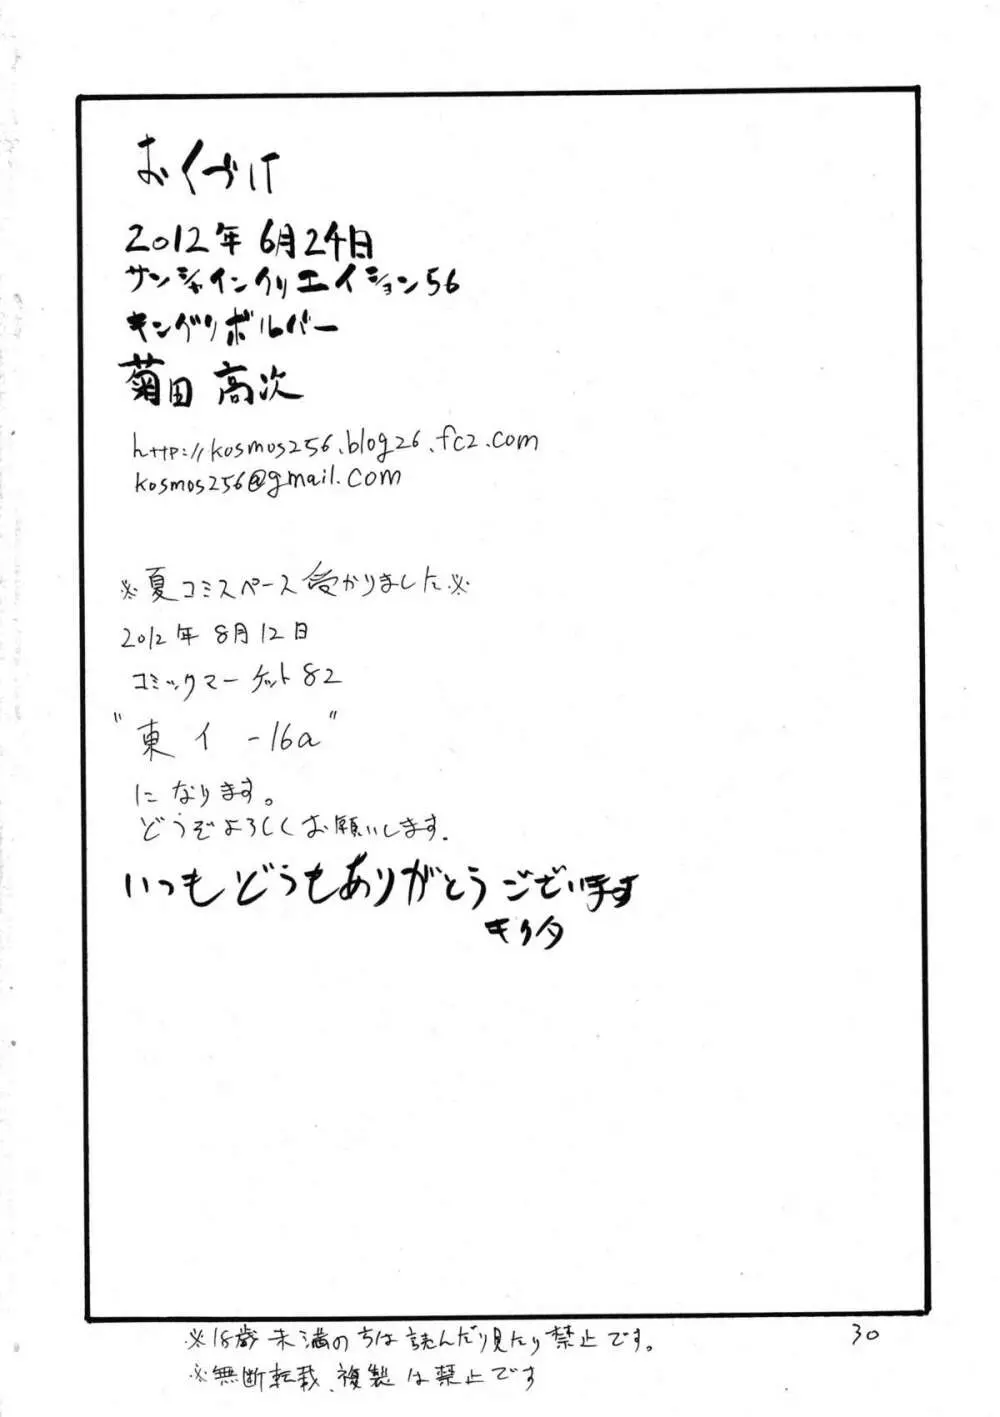 おくづけ
2012年 6月24日
サンシャインクリエイション56
キングリボルバー
菊田 高次
http://kosmos256.blog26.fc2.com
kosmos256@gmail.com
※夏コミスペース受かりました※
2012年 8月12日
コミックマーケット82
"東イ-16a"
になります。
どうぞよろしくお願いします.
いつもどうもありがとうございます
キクタ
※18歳未満の方は読んだり見たり禁止です。
30
※無断転載、複製は禁止です